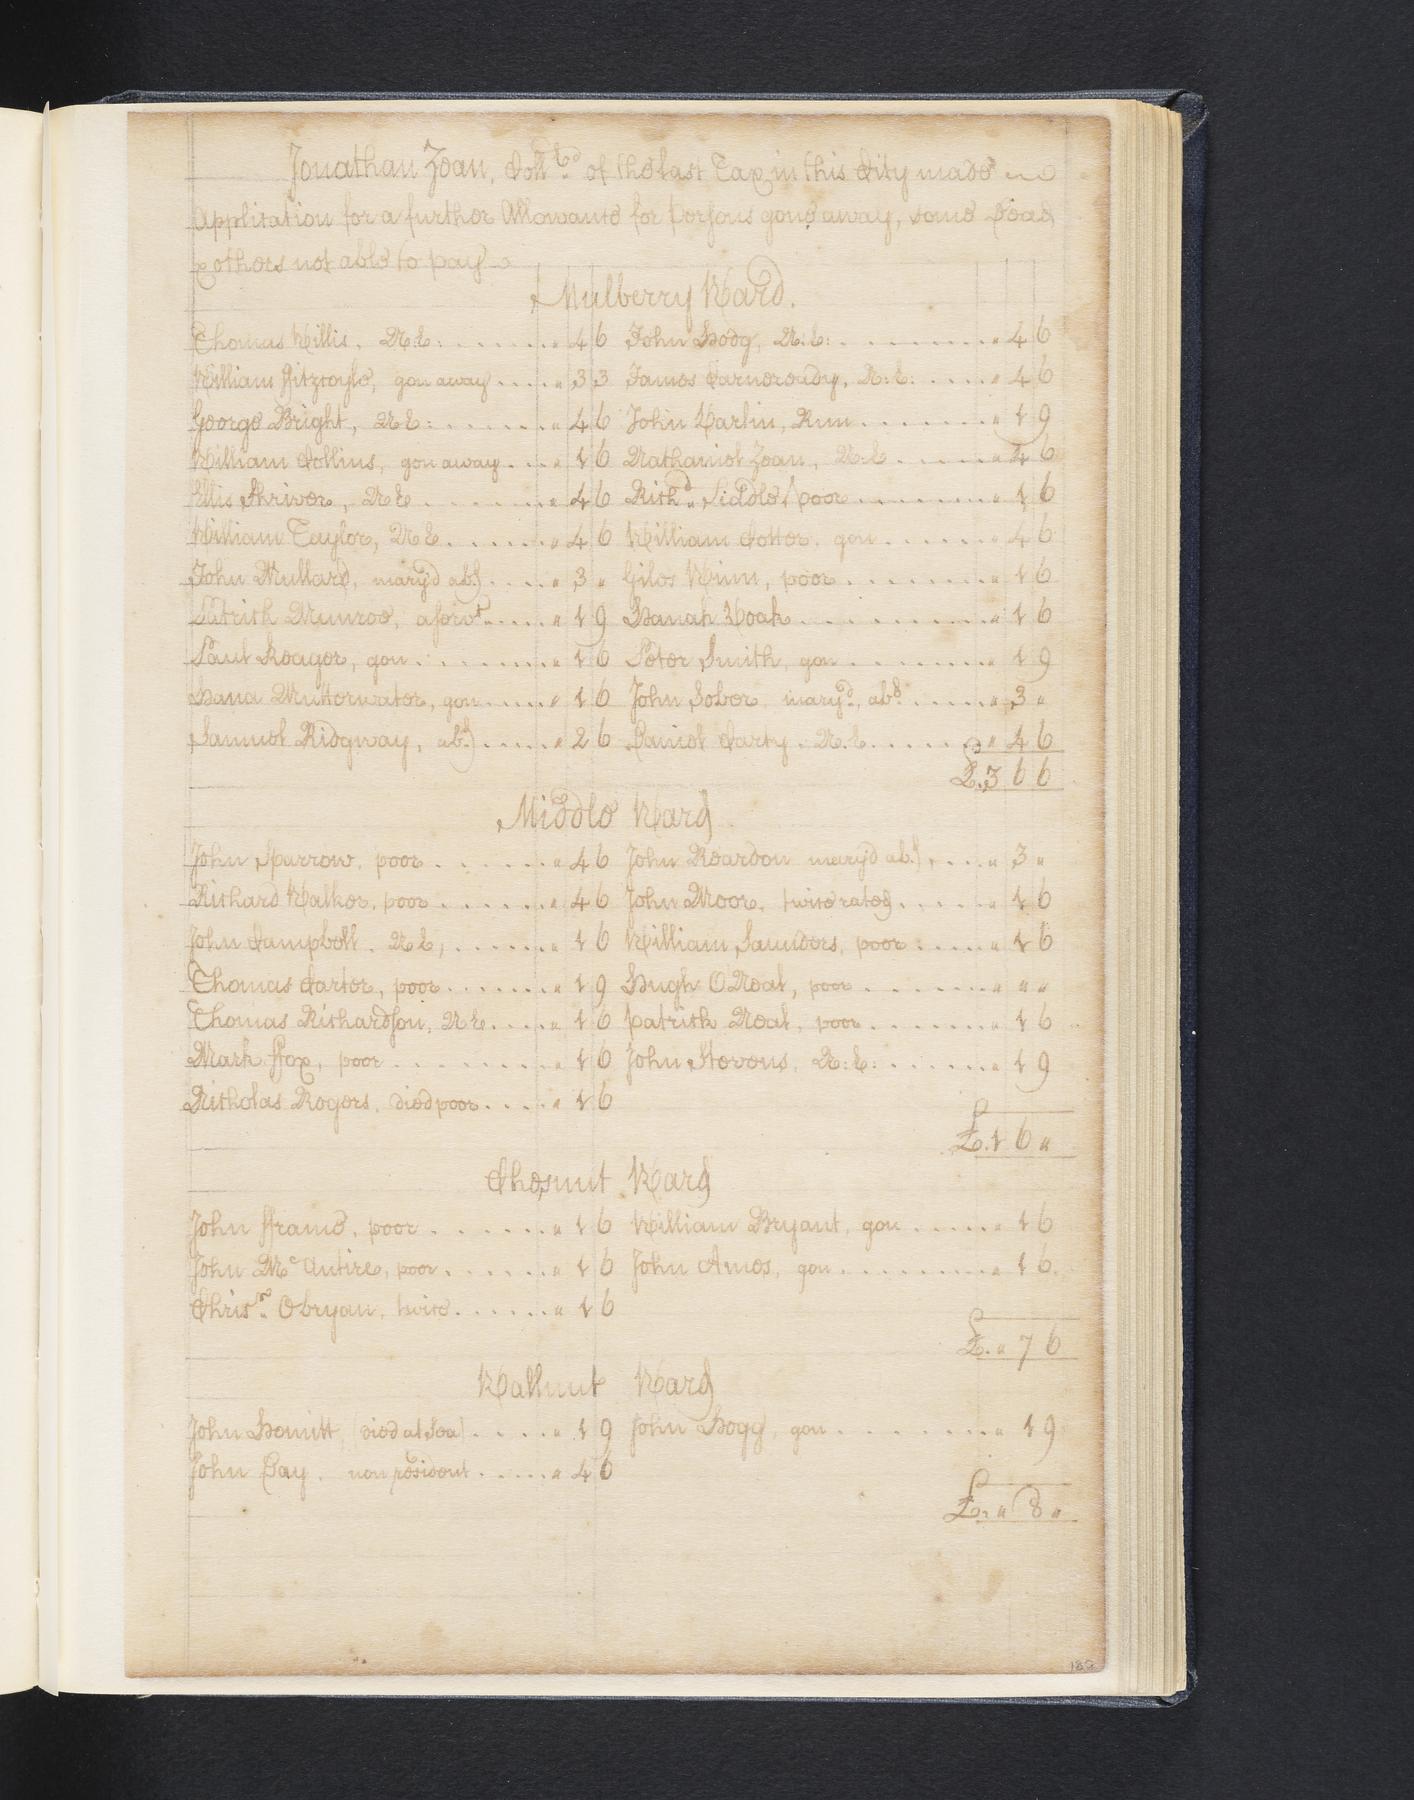 Jonathan Zean, Coll.td of the last Tax in this City made
Application for a further Allowance for Persons gone away, some Dead,
& others not able to pay
Mulberry Ward.
Thomas Willis, N.E: " 4 6 John Hodg, N.E: " 4 6
William ffitz gon away " 3 3 James N:E: " 4 6
George Bright, N.E: " 4 6 John Karlin, Run " 1 9
William Collins, gon away " 1 6 Nathaniel Zean, N.E " 4 6
Ellis Shriver, N.E " 4 6 Rich.d Siddle, poor " 1 6
William Taylor, N.E. " 4 6 William Cotter, gon " 4 6
John Mullard, mary'd ab.d " 3 " Giles Winn, poor " 1 6
Patrick Munroe, a serv.t " 1 9 Hanah Hoak " 1 6
Paul Reager, gon " 1 6 Peter Smith, gon " 1 9
Hana Mutterwater, gon " 1 6 John Sober, mary.d, ab.d " 3 "
Samuel Ridgway, ab.d " 2 6 Daniel Carty, N.E. " 4 6
£.3 6 6
Middle Ward
John Sparrow, poor " 4 6 John Reardon mary'd ab.d, " 3 "
Richard Walker, poor " 4 6 John Moor, twice rated " 1 6
John Campbell, N.E, " 1 6 William Saunders, poor " 1 6
Thomas Carter, poor " 1 9 Hugh O Neal, poor " " "
Thomas Richardson, N.E. " 1 6 Patrick Neal, poor " 1 6
Mark ffox, poor " 1 6 John Stevens, N:E: " 1 9
Nicholas Rogers, died poor " 1 6
£.1 6 "
Chesnut Ward
John fframe, poor " 1 6 William Bryant, gon " 1 6
John Mc Antire, poor " 1 6 John Amos, gon " 1 6
Chris.r Obryan, twice " 1 6
£. " 7 6
Wallnut Ward
John Hewitt, (died at Sea) " 1 9 John Hogg, gon " 1 9
John Day, non resident " 4 6
£. " 8 "